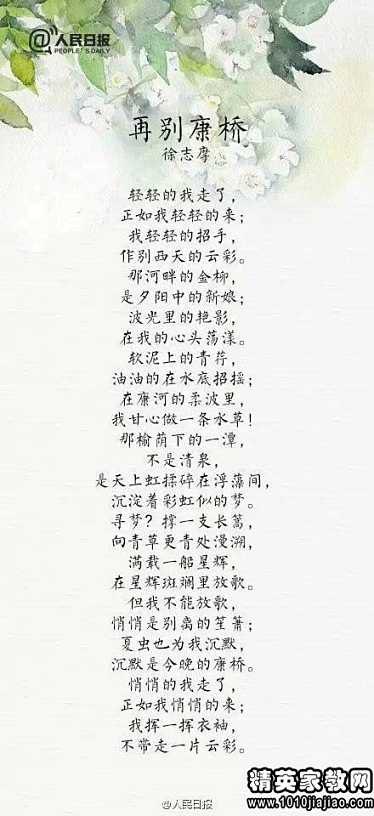 @人民日报
PEOPLE'S DAILY
再别康桥
徐志摩
轻轻的我走了，
正如我轻轻的来；
我轻轻的招手，
作别西天的云彩。
那河畔的金柳，
是夕阳中的新娘；
波光里的艳影，
在我的心头荡漾。
软泥上的青荇，
油油的在水底招摇；
在康河的柔波里，
我甘心做一条水草！
那榆荫下的一潭，
不是清泉，
是天上虹揉碎在浮藻间，
沉淀着彩虹似的梦。
寻梦？撑一支长篙，
向青草更青处漫溯，
满载一船星辉，
在星辉斑斓里放歌。
但我不能放歌，
悄悄是别离的笙箫；
夏虫也为我沉默，
沉默是今晚的康桥。
悄悄的我走了，
正如我悄悄的来；
我挥一挥衣袖，
不带走一片云彩。
@人民日报
精英家教网
www.1010jiajiao.com